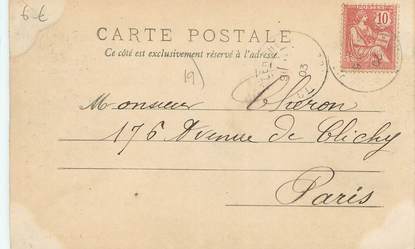 6 €
CARTE POSTALE
Ce côté est exclusivement réservé à l'adresse.
10
19
03
Monsieur Chéron
175 Avenue de Clichy
Paris